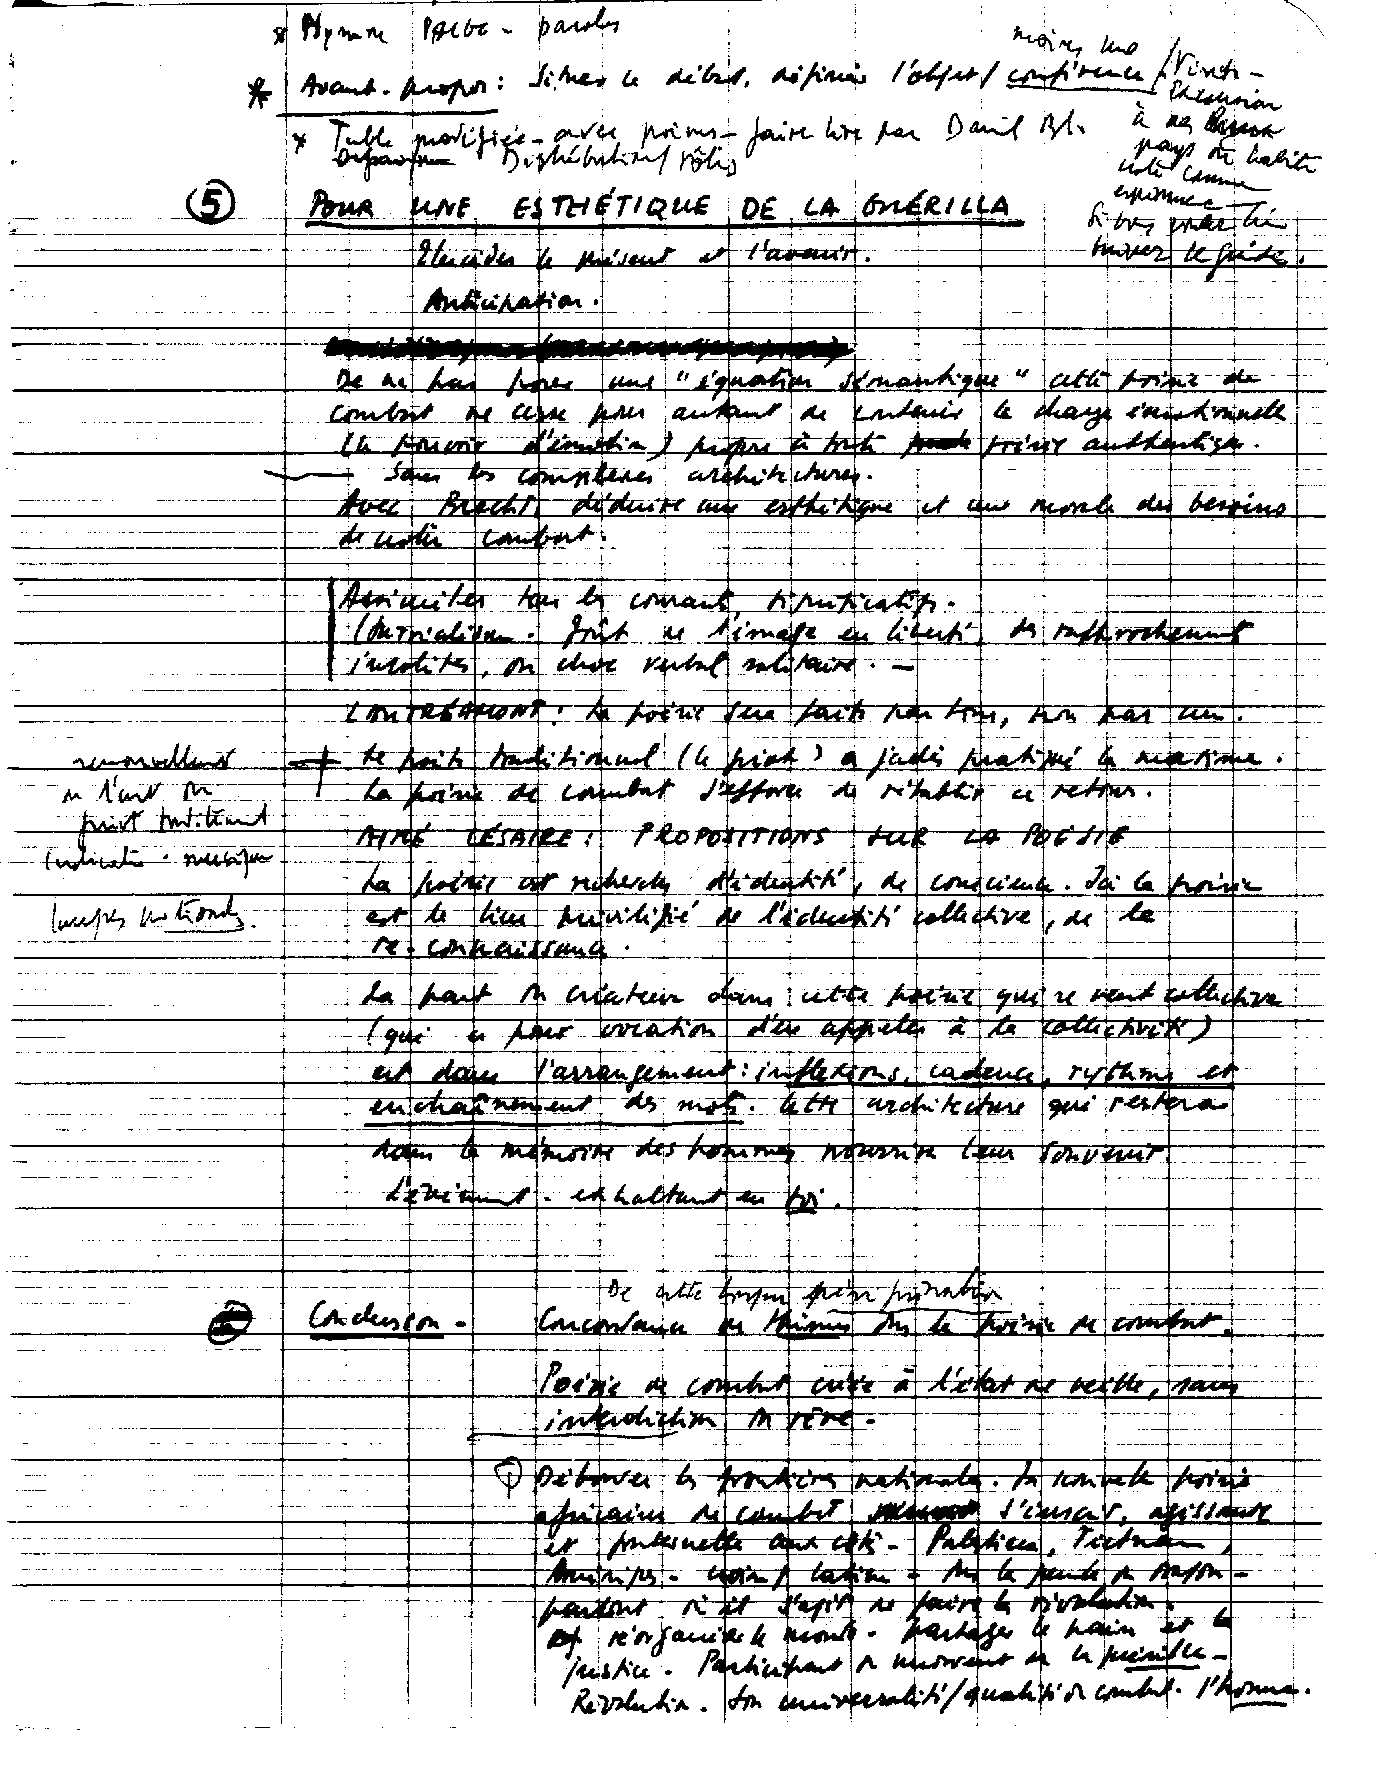 * Hymne PAIGC - paroles
* Avant-propos: Situer le début, définir l'objet / moins une conférence /
qu'une excursion
à nos
pays où habite
notre commune
expérience -
Si vous voulez bien
suivez le guide.
* Table modifiée - avec poèmes - faire lire par
Distribution / rôles
(5) POUR UNE ESTHÉTIQUE DE LA GUÉRILLA
Élucider le présent et l'avenir.
Anticipation.
De ne pas poser une "équation sémantique" cette poésie de
combat ne cesse pour autant de contenir la charge émotionnelle
(le pouvoir d'émotion) propre à toute poésie authentique.
Sans les complexes architectures.
Avec Brecht, déduire une esthétique et une morale des besoins
de notre combat.
Assimiler tous les courants significatifs.
(surréalisme - goût de l'image en liberté, des rapprochements
insolites, du choc verbal salutaire. -
LAUTRÉAMONT: La poésie sera faite par tous, non par un.
Le poète traditionnel (le griot) a jadis pratiqué la maxime.
La poésie de combat s'efforce de rétablir ce retour.
renouvellement
de l'art du
griot traditionnel
musique
AIMÉ CÉSAIRE: PROPOSITIONS SUR LA POÉSIE
La poésie est recherche d'identité, de conscience. Ici la poésie
est le lieu privilégié de l'identité collective, de la
re-connaissance.
La part du créateur dans cette poésie qui se veut collective
(qui a pour vocation d'en appeler à la collectivité)
est dans l'arrangement: inflexions, cadence, rythme et
enchaînement des mots. Cette architecture qui restera
dans la mémoire des hommes nourrira leur souvenir.
L'événement - exhaltant en soi.
De cette longue
Conclusion - Concordance de thèmes ds la poésie de combat.
Poésie de combat créée à l'état de veille, sans
interdiction du rêve.
Déborder les frontières nationales. La nouvelle poésie
africaine de combat s'inscrit, agissante
et fraternelle aux côtés - Palestine, Vietnam,
Amériques - noire / latine -
partout où il s'agit de faire la révolution.
réorganiser le monde - partager le pain et la
justice. Participant du mouvement de la
Révolution. Son universalité / qualité du combat. l'homme.